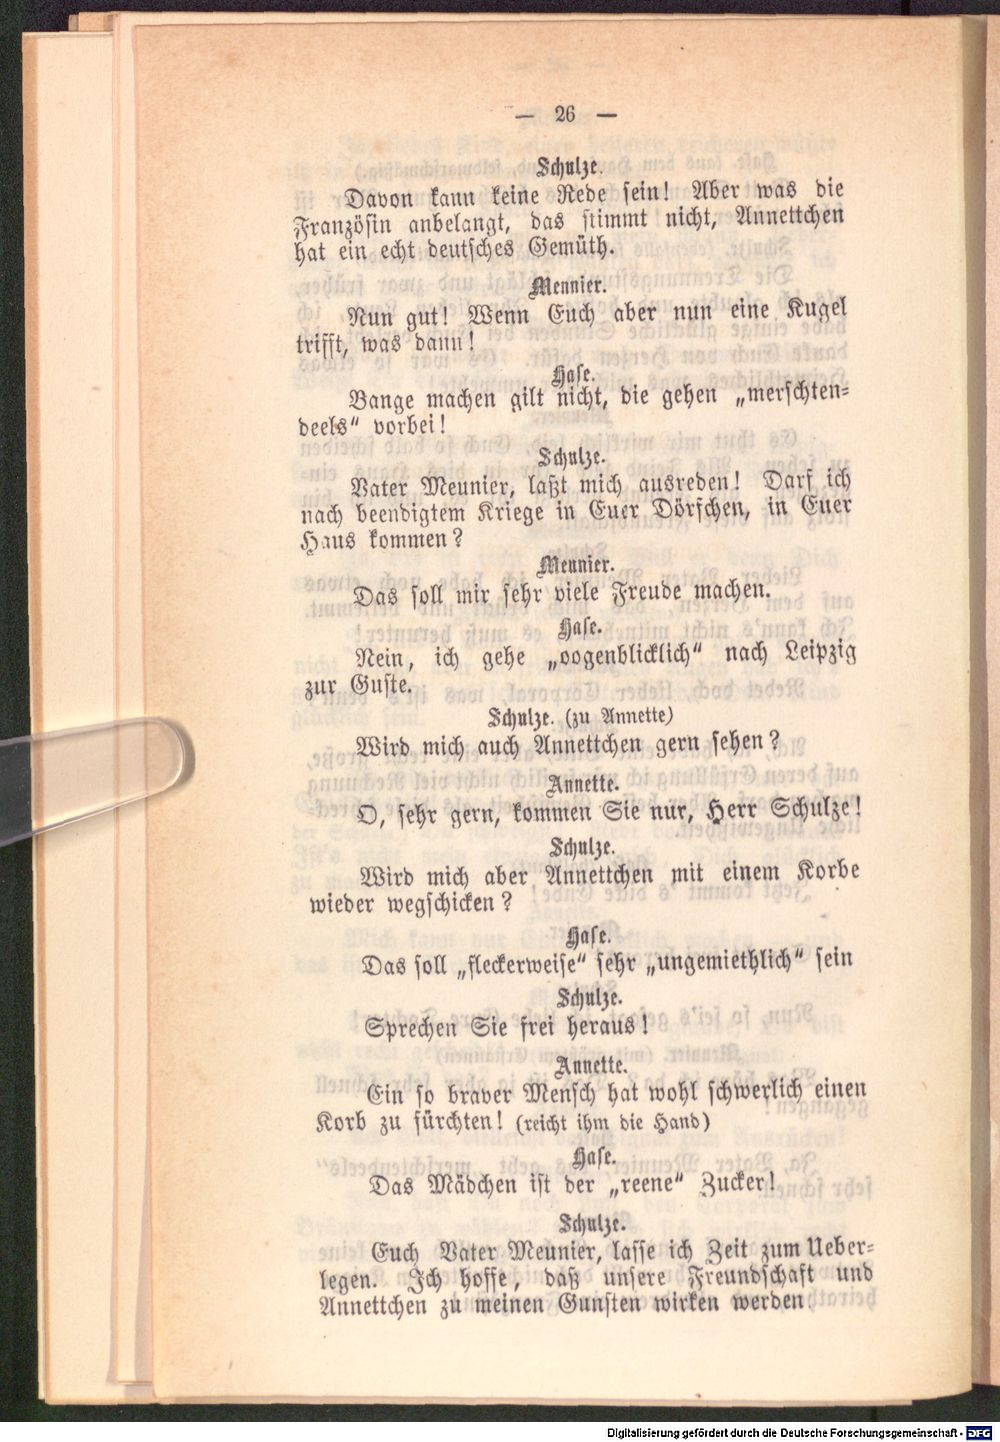 — 26 —
Schulze.
Davon kann keine Rede sein! Aber was die
Französin anbelangt, das stimmt nicht, Annettchen
hat ein echt deutsches Gemüth.
Mennier.
Nun gut! Wenn Euch aber nun eine Kugel
trifft, was dann!
Hase.
Bange machen gilt nicht, die gehen „merschten-
deels“ vorbei!
Schulze.
Vater Meunier, laßt mich ausreden! Darf ich
nach beendigtem Kriege in Euer Dörfchen, in Euer
Haus kommen?
Meunier.
Das soll mir sehr viele Freude machen.
Hase.
Nein, ich gehe „oogenblicklich“ nach Leipzig
zur Guste.
Schulze. (zu Annette)
Wird mich auch Annettchen gern sehen?
Annette.
O, sehr gern, kommen Sie nur, Herr Schulze!
Schulze.
Wird mich aber Annettchen mit einem Korbe
wieder wegschicken?
Hase.
Das soll „fleckerweise“ sehr „ungemiethlich“ sein
Schulze.
Sprechen Sie frei heraus!
Annette.
Ein so braver Mensch hat wohl schwerlich einen
Korb zu fürchten! (reicht ihm die Hand)
Hase.
Das Mädchen ist der „reene“ Zucker!
Schulze.
Euch Vater Meunier, lasse ich Zeit zum Ueber-
legen. Ich hoffe, daß unsere Freundschaft und
Annettchen zu meinen Gunsten wirken werden.
Digitalisierung gefördert durch die Deutsche Forschungsgemeinschaft - DFG